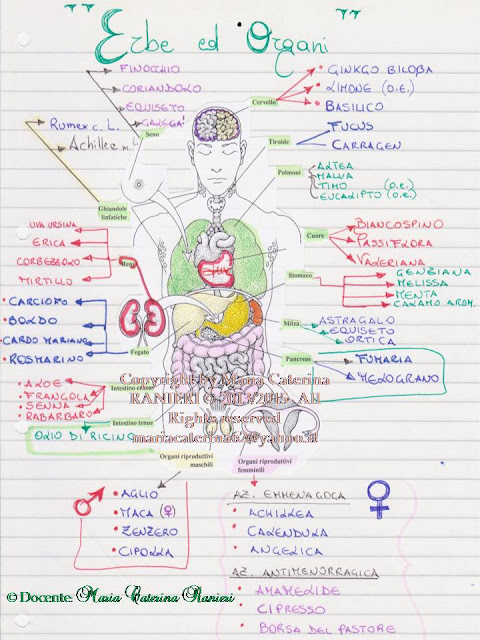 "Erbe ed Organi"
FINOCCHIO
CORIANDOLO
EQUISETO
GALEGA!
Seno
Rumex c. L.
Achillea m L
Ghiandole linfatiche
Cervello
GINKGO BILOBA
LIMONE (O.E.)
BASILICO
Tiroide
FUCUS
CARRAGEN
Polmoni
ALTEA
MALVA
TIMO (O.E.)
EUCALIPTO (O.E.)
UVA URSINA
ERICA
CORBEZZOLO
MIRTILLO
Reni
Cuore
BIANCOSPINO
PASSIFLORA
VALERIANA
Stomaco
GENZIANA
MELISSA
MENTA
CALAMO AROM.
CARCIOFO
BOLDO
CARDO MARIANO
ROSMARINO
Fegato
Milza
ASTRAGALO
EQUISETO
ORTICA
Pancreas
FUMARIA
MELOGRANO
ALOE
FRANGOLA
SENNA
RABARBARO
Intestino crasso
Intestino tenue
OLIO DI RICINO
Copyright by Maria Caterina
RANIERI © 2013/2015 All
Rights reserved
mariacaterina62@yahoo.it
Organi riproduttivi
maschili
Organi riproduttivi
femminili
♂
AGLIO
MACA (♀)
ZENZERO
CIPOLLA
AZ. EMMENAGOGA
♀
ACHILLEA
CALENDULA
ANGELICA
AZ. ANTIMENORRAGICA
AMAMELIDE
CIPRESSO
BORSA DEL PASTORE
© Docente: Maria Caterina Ranieri